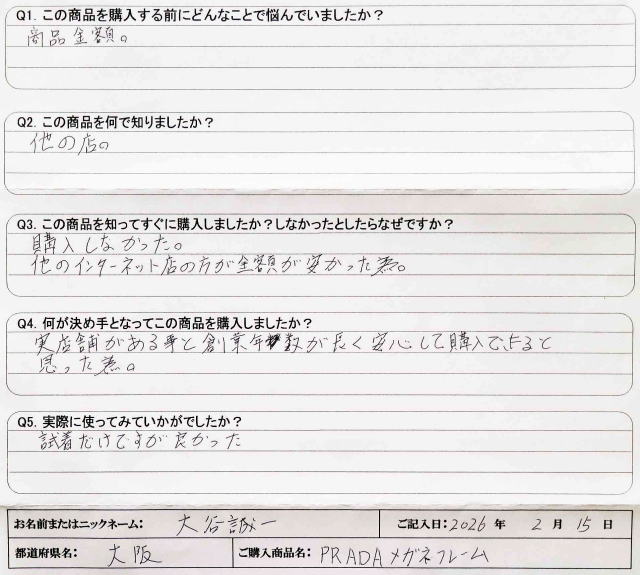 Q1. この商品を購入する前にどんなことで悩んでいましたか？
商品金額。
Q2. この商品を何で知りましたか？
他の店。
Q3. この商品を知ってすぐに購入しましたか？しなかったとしたらなぜですか？
購入しなかった。
他のインターネット店の方が金額が安かった為。
Q4. 何が決め手となってこの商品を購入しましたか？
実店舗がある事と創業年数が長く安心して購入できると
思った為。
Q5. 実際に使ってみていかがでしたか？
試着だけですが良かった
お名前またはニックネーム： 大谷誠一 ご記入日：2026 年 2 月 15 日
都道府県名： 大阪 ご購入商品名： PRADAメガネフレーム